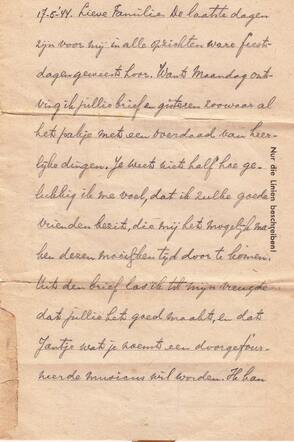 17-5-'44. Lieve Familie. De laatste dagen
zijn voor mij in alle opzichten ware feest-
dagen geweest hoor. Want Maandag ont-
ving ik jullie brief en gisteren zoowaar al
het pakje met een overdaad van heer-
lijke dingen. Je weet niet half hoe ge-
lukkig ik me voel, dat ik zulke goede
vrienden bezit, die mij het mogelijk ma-
ken dezen moeilijken tijd door te komen.
Uit den brief las ik tot mijn vreugde
dat jullie het goed maakt, en dat
Jantje wat je noemt een doorgefour-
neerde musicus wil worden. Ik kan
Nur die Linien beschreiben!